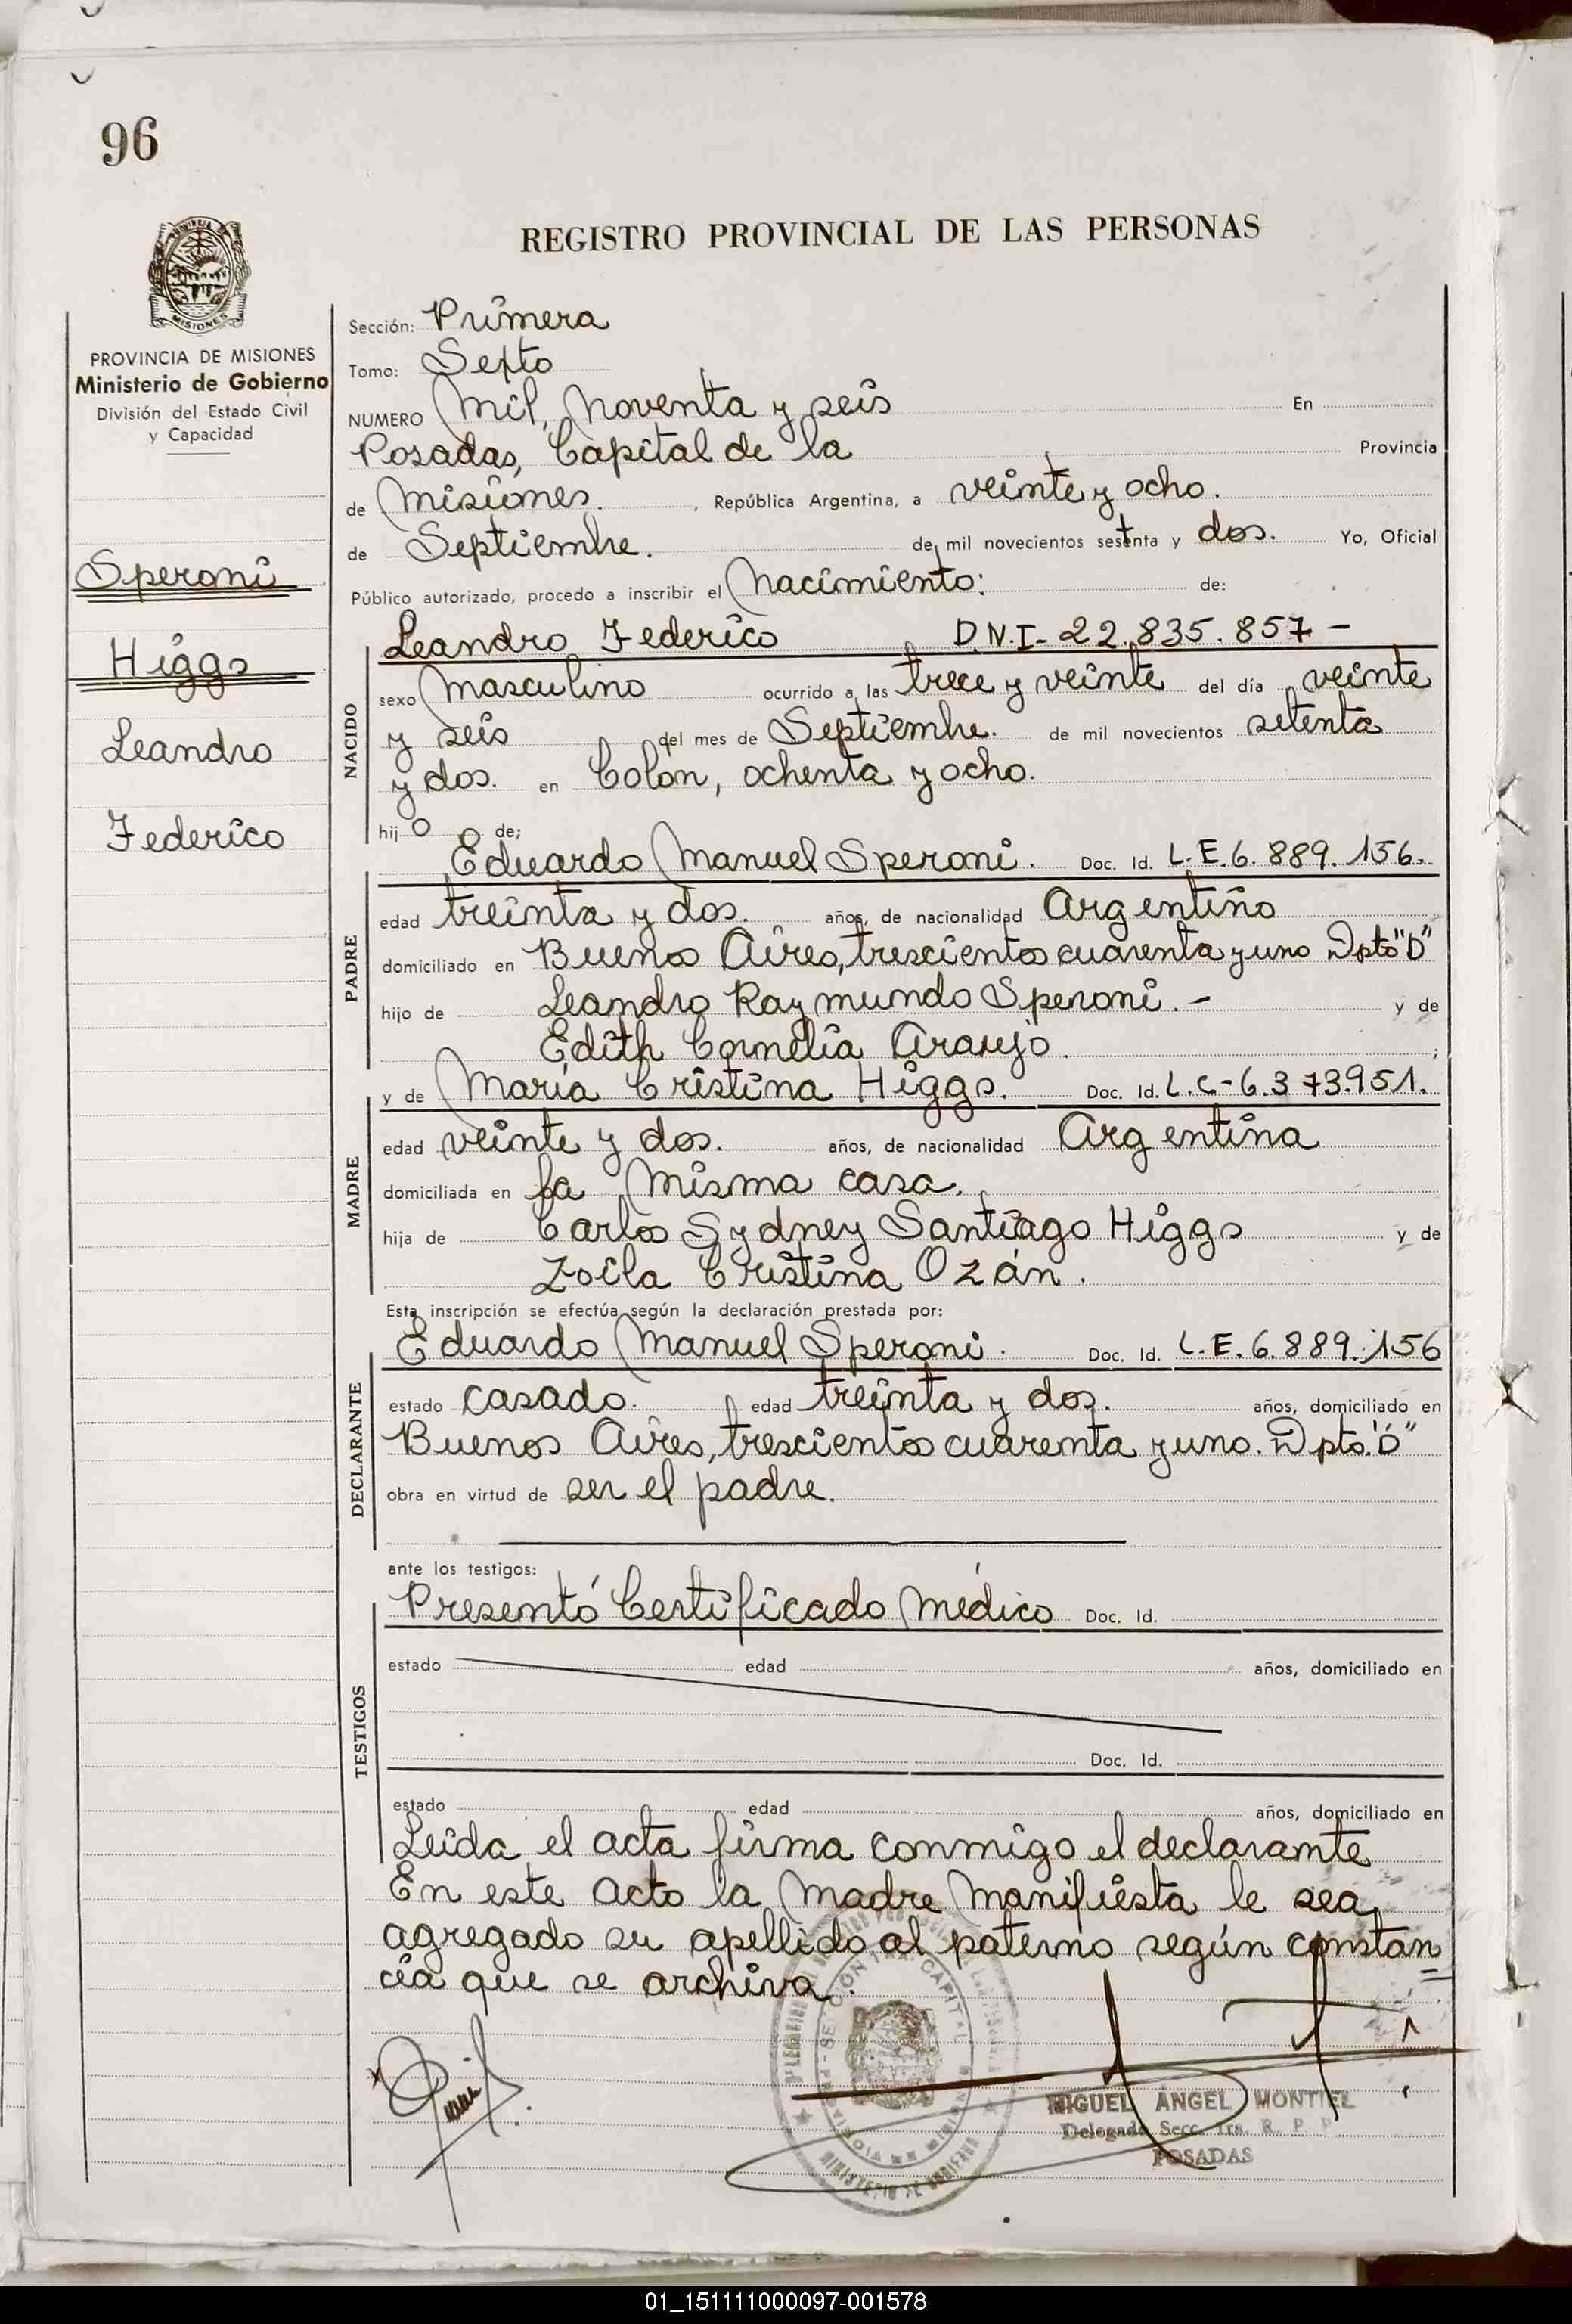 96
REGISTRO PROVINCIAL DE LAS PERSONAS
MISIONES
PROVINCIA DE MISIONES
Ministerio de Gobierno
División del Estado Civil
y Capacidad
Speroni
Higgs
Leandro
Federico
Sección: Primera
Tomo: Sexto
NUMERO Mil, Noventa y seis En
Posadas, Capital de la Provincia
de Misiones. , República Argentina, a veinte y ocho.
de Septiembre. de mil novecientos sesenta y dos. Yo, Oficial
Público autorizado, procedo a inscribir el Nacimiento: de:
NACIDO
Leandro Federico D.N.I- 22.835.857 -
sexo Masculino ocurrido a las trece y veinte del día veinte
y seis del mes de Septiembre. de mil novecientos setenta
y dos. en Colón, ochenta y ocho.
hijo de;
PADRE
Eduardo Manuel Speroni. Doc. Id. L.E. 6.889.156.
edad treinta y dos. años, de nacionalidad Argentino
domiciliado en Buenos Aires, trescientos cuarenta y uno Dpto "D"
hijo de Leandro Raymundo Speroni. - y de
Edith Cornelia Araujo. ;
MADRE
y de María Cristina Higgs. Doc. Id. L.C-6.373.951.
edad veinte y dos. años, de nacionalidad Argentina
domiciliada en la Misma casa.
hija de Carlos Sydney Santiago Higgs y de
Zoila Cristina Ozán.
Esta inscripción se efectúa según la declaración prestada por:
DECLARANTE
Eduardo Manuel Speroni. Doc. Id. L.E. 6.889.156
estado casado. edad treinta y dos. años, domiciliado en
Buenos Aires, trescientos cuarenta y uno. Dpto. "D"
obra en virtud de ser el padre.
ante los testigos:
TESTIGOS
Presentó Certificado Médico Doc. Id.
estado edad años, domiciliado en
Doc. Id.
estado edad años, domiciliado en
Leída el acta firma conmigo el declarante
En este acto la Madre Manifiesta le sea
agregado su apellido al paterno según constan
cia que se archiva.
MIGUEL ÁNGEL MONTIEL
Delegado Secc. 1ra. R. P. P.
POSADAS
MINISTERIO DE GOBIERNO
01_151111000097-001578